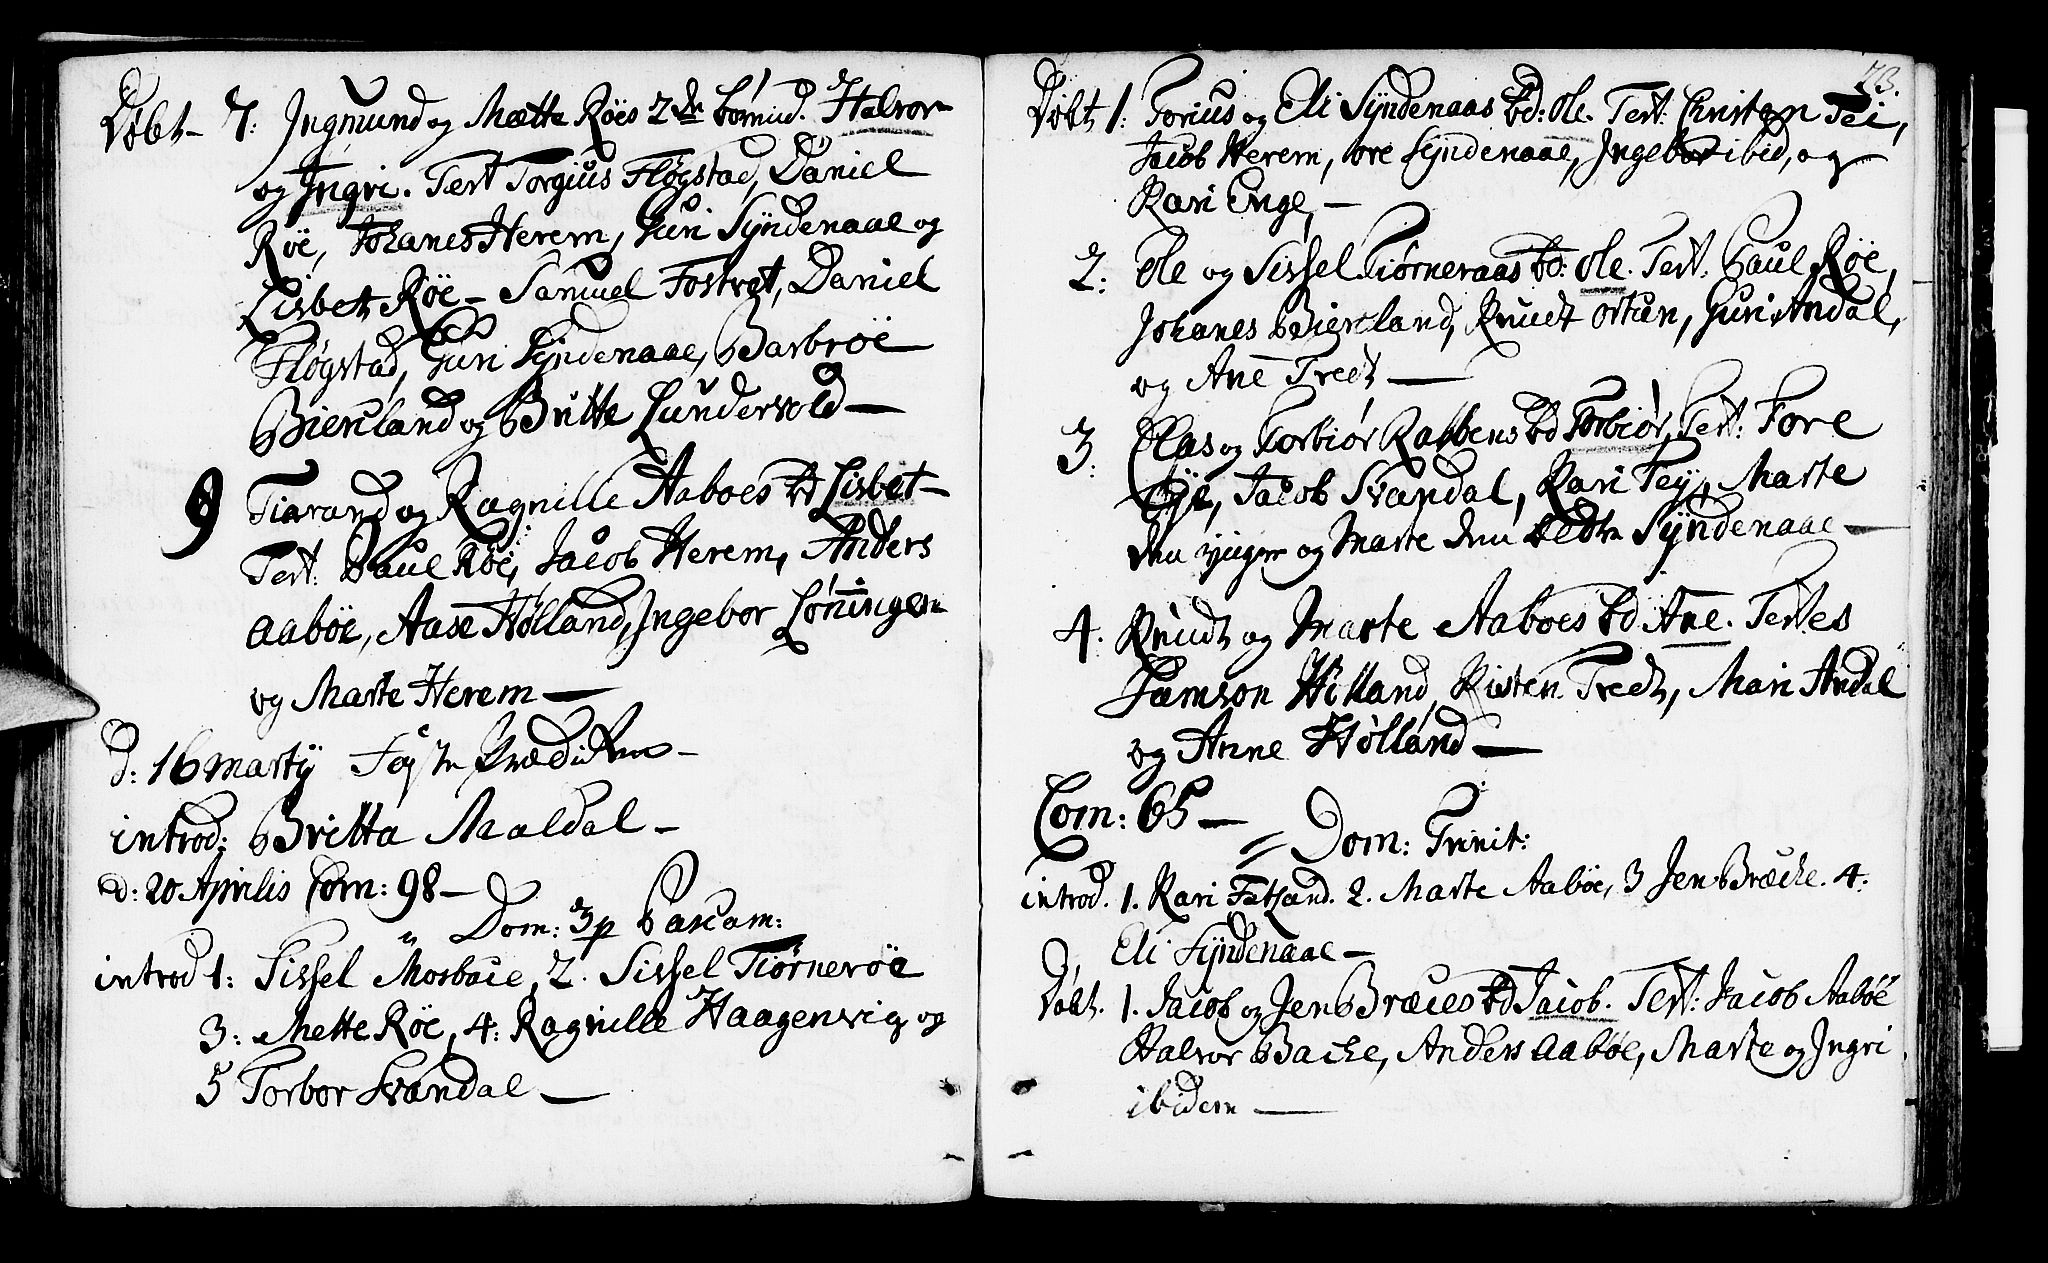 Døbt – 7: Ingmund og Mætte Røes 2de børn Halvor
og Ingri. Test Torgius Fløgstad, Daniel
Røe, Johanes Herem, Guri Syndenaae og
Lisbet Røe – Samuel Fostvet, Daniel
Fløgstad, Guri Syndenaae, Barbroe
Bierland og Britte Lundervold —
9 Tiarand og Ragnille Aaboes bd Lisbet –
Test: Paul Røe, Jacob Herem, Anders
Aabøe, Aase Hølland, Ingebor Løningen
og Marte Herem —
d: 16 Martij Første Prædiken –
introd: Britta Maldal –
d: 20 Aprilis Com: 98 –
" Dom: 3 p Pascam:
introd 1: Sissel Mosbace, 2. Sissel Tiørnerøe
3: Mette Røe, 4: Ragnille Haagenvig og
5 Torbor Svandal —
73.
Døbt 1: Torius og Eli Syndenaas bd: Ole. Test: Christen Tei,
Jacob Herem, ore Syndenaae, Ingebor ibid, og
Kari Enge, –
2: Ole og Sissel Tiørneraas bd: Ole. Test: Paul Røe,
Johanes Bierland, Knudt Ortun, Guri Andal,
og Ane Tredt —
3: Clas og Torbiør Rabbens bd Torbiør, Test: Tore
Eye, Jacob Svandal, Kari Tey, Marte
den yngre og Marte den Eldre Syndenaae —
4. Knudt og Marte Aaboes bd Ane. Testes
Samson Hølland, Kisten Tredt, Mari Andal
og Anne Hølland —
Com: 65 —
" Dom: Trinit:
introd. 1. Kari Fatland. 2. Marte Aabøe, 3 Jen Bræcke. 4.
Eli Syndenaae –
Døbt. 1. Jacob og Jen Bræces bd Jacob. Test: Jacob Aabøe
Halvor Backe, Anders Aabøe, Marte og Ingri
ibidem —